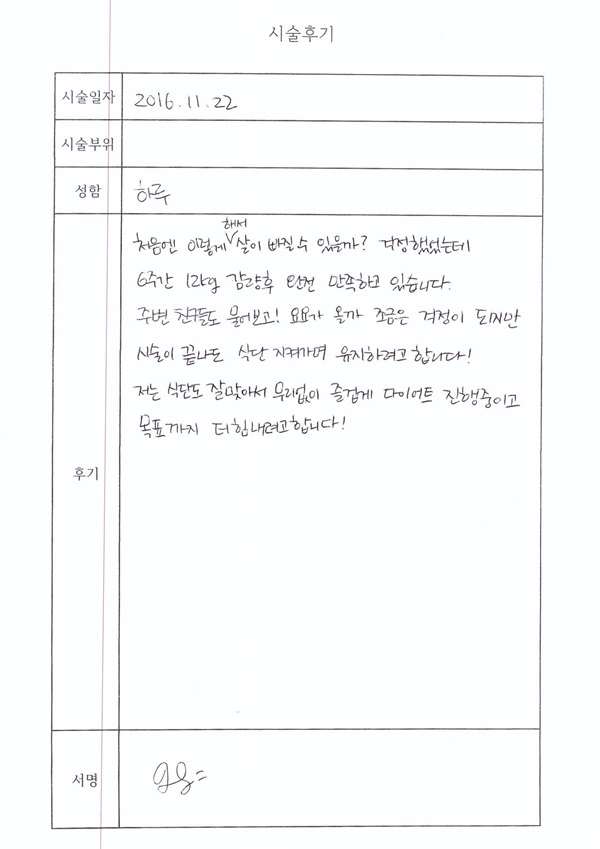 시술후기
시술일자 2016.11.22
시술부위
성함 하루
해서
처음엔 이렇게 살이 빠질 수 있을까? 걱정했었는데
6주간 12kg 감량후 완전 만족하고 있습니다.
주변 친구들도 물어보고! 요요가 올까 조금은 걱정이 되지만
시술이 끝나도 식단 지켜가며 유지하려고 합니다!
저는 식단도 잘맞아서 무리없이 즐겁게 다이어트 진행중이고
목표까지 더힘내려고합니다!
후기
서명